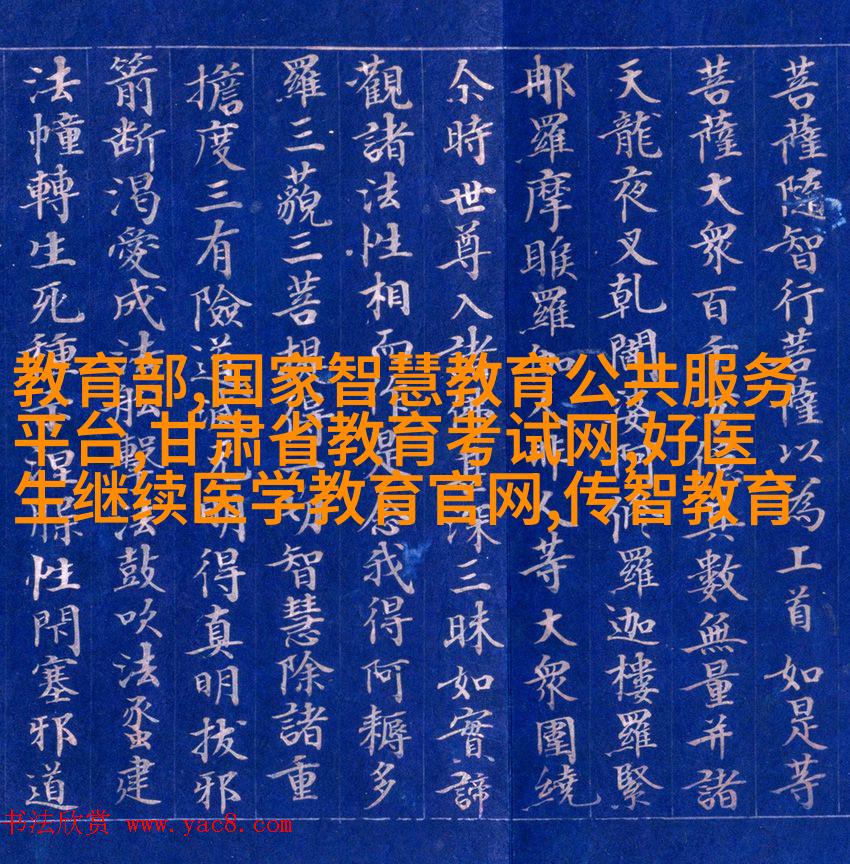 菩薩隨智行菩薩以為工首如是等
菩薩大衆百千其數無量并諸
天龍夜叉乹闥婆阿脩羅迦樓羅緊
那羅摩睺羅人等大衆圍繞
尒時世尊入諸佛甚深三昧如實諦
觀諸法性相而作是念我得阿耨多
羅三藐三菩提得一切智慧除諸重
擔度三有險道滅無明得真明拔邪
箭断渴愛成法船擊法鼓吹法蠡建
法幢轉生死種子性閇塞邪道
教育部,国家智慧教育公共服务
平台,甘肃省教育考试网,好医
生继续医学教育官网,传智教育
书法欣赏 www.yac8.com